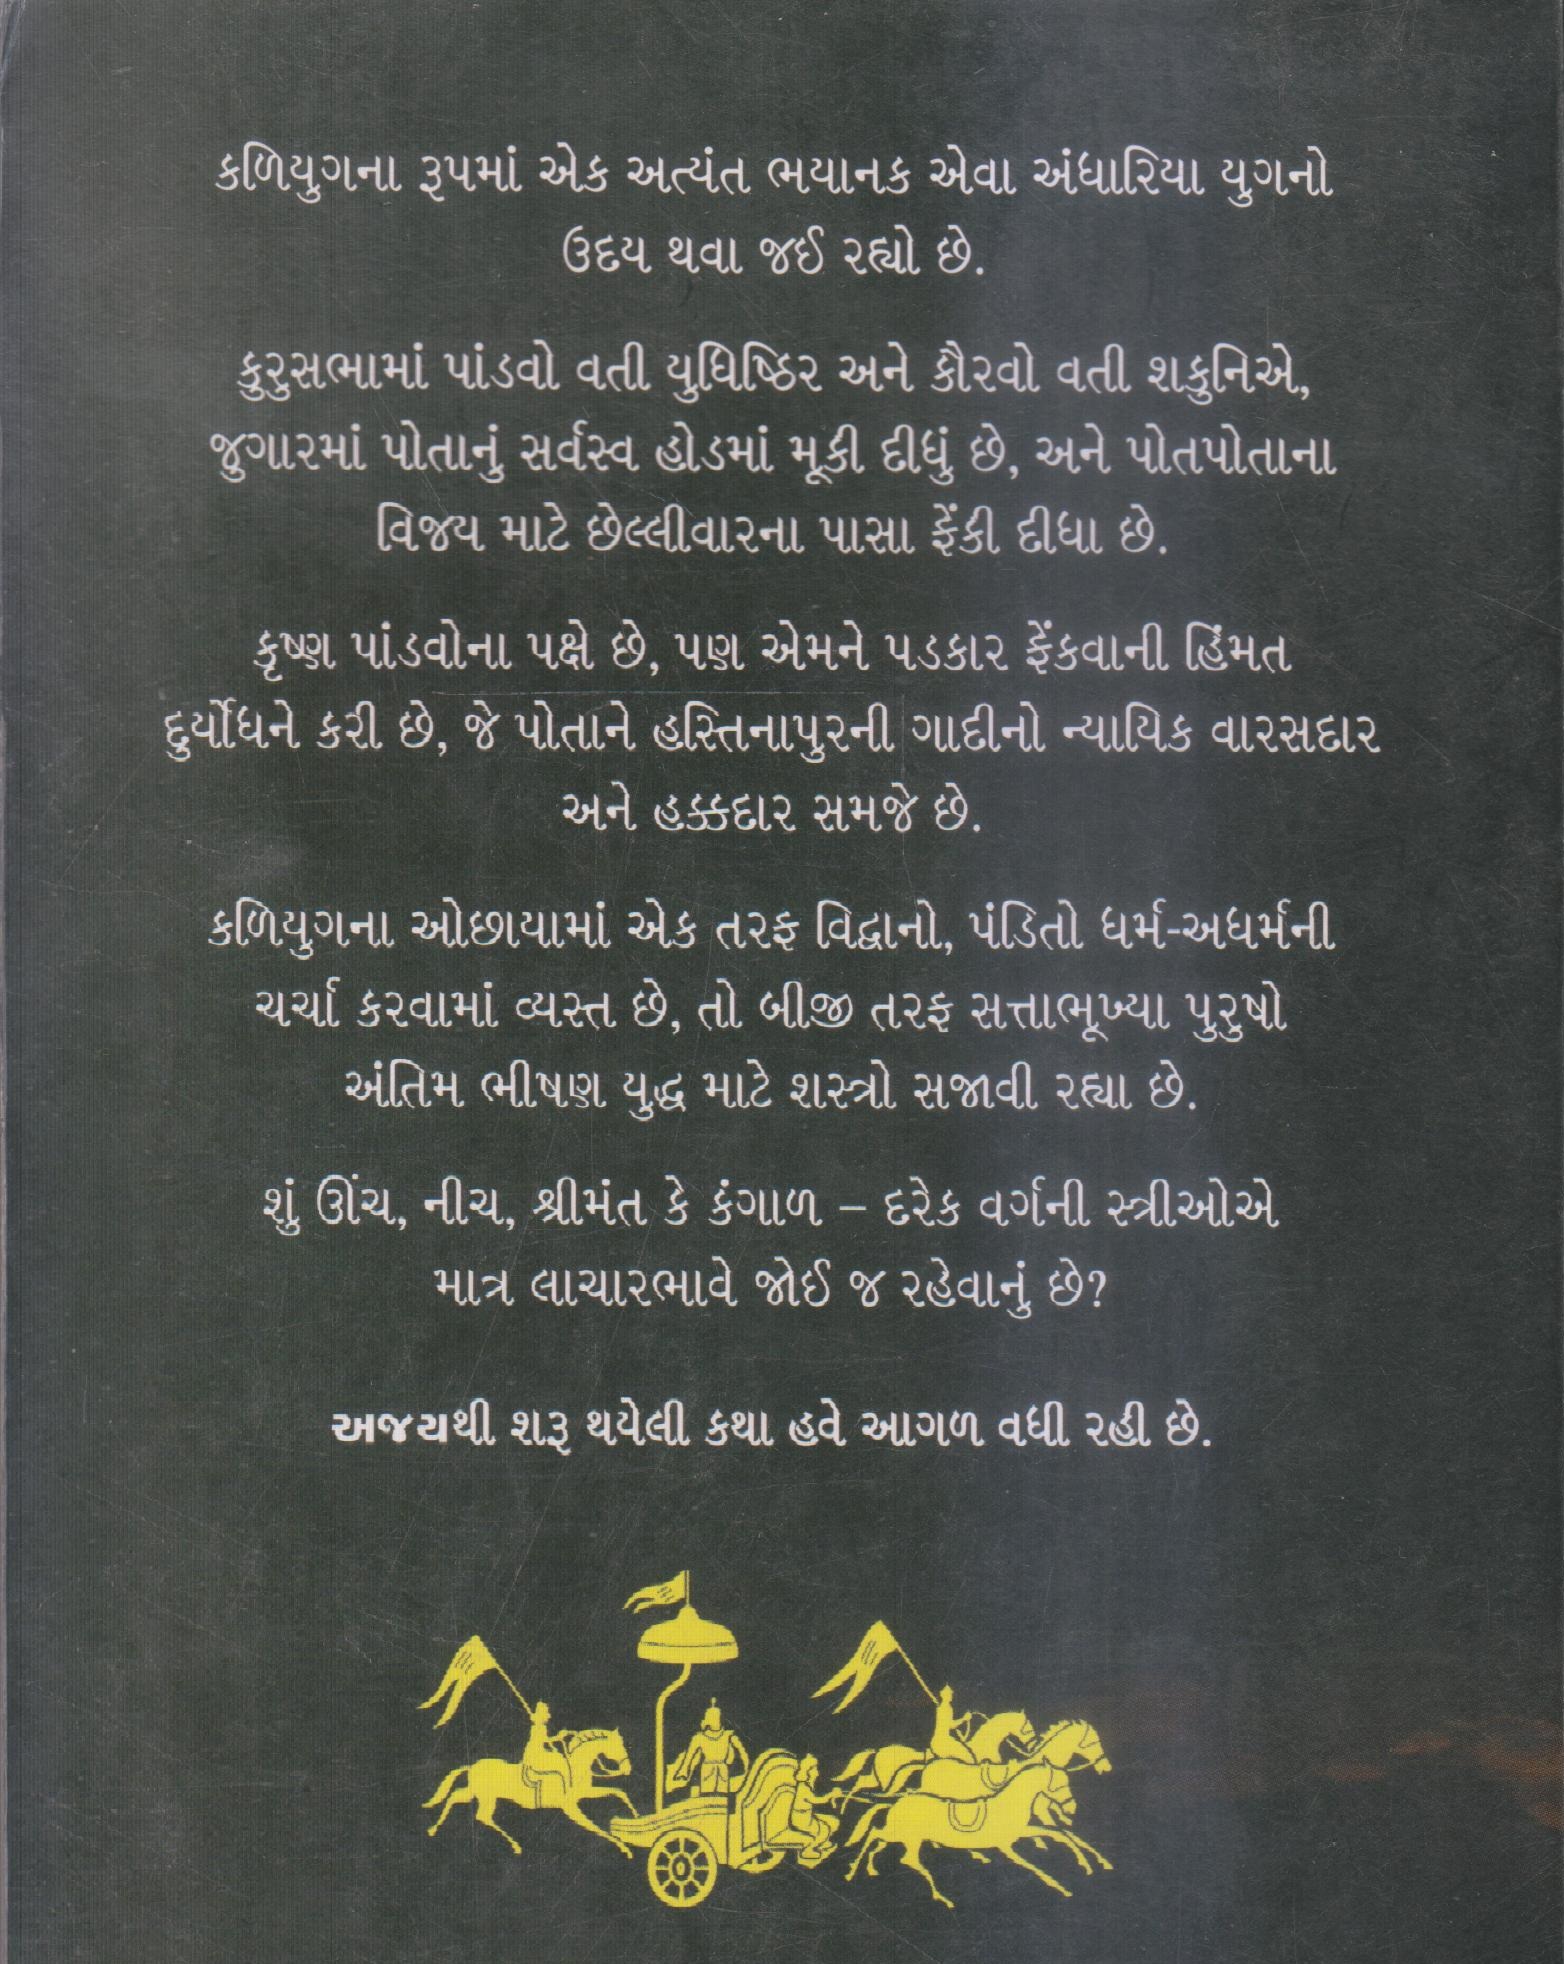 કળિયુગના રૂપમાં એક અત્યંત ભયાનક એવા અંધારિયા યુગનો
ઉદય થવા જઈ રહ્યો છે.
કુરુસભામાં પાંડવો વતી યુધિષ્ઠિર અને કૌરવો વતી શકુનિએ,
જુગારમાં પોતાનું સર્વસ્વ હોડમાં મૂકી દીધું છે, અને પોતપોતાના
વિજય માટે છેલ્લીવારના પાસા ફેંકી દીધા છે.
કૃષ્ણ પાંડવોના પક્ષે છે, પણ એમને પડકાર ફેંકવાની હિંમત
દુર્યોધને કરી છે, જે પોતાને હસ્તિનાપુરની ગાદીનો ન્યાયિક વારસદાર
અને હક્કદાર સમજે છે.
કળિયુગના ઓછાયામાં એક તરફ વિદ્વાનો, પંડિતો ધર્મ-અધર્મની
ચર્ચા કરવામાં વ્યસ્ત છે, તો બીજી તરફ સત્તાભૂખ્યા પુરુષો
અંતિમ ભીષણ યુદ્ધ માટે શસ્ત્રો સજાવી રહ્યા છે.
શું ઊંચ, નીચ, શ્રીમંત કે કંગાળ – દરેક વર્ગની સ્ત્રીઓએ
માત્ર લાચારભાવે જોઈ જ રહેવાનું છે?
અજયથી શરૂ થયેલી કથા હવે આગળ વધી રહી છે.